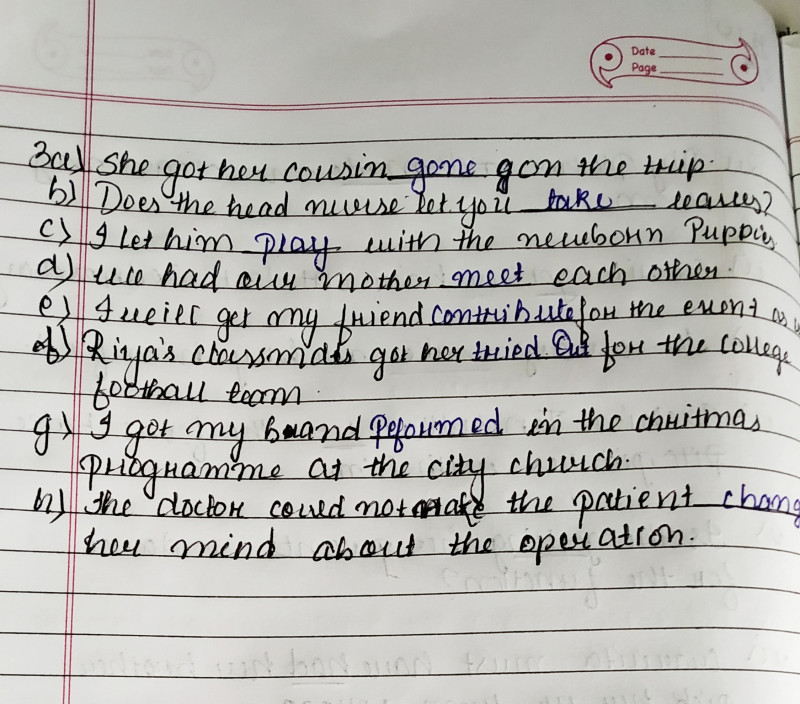 Date
Page
3a) She got her cousin gone gon the trip.
b) Does the head nurse let you take leaves?
c) I let him play with the newborn Puppies
d) we had our mother meet each other.
e) I will get my friend contribute for the event as
f) Riya's classmates got her tried Out for the college
football team.
g) I got my band Pefoumed in the chritmas
programme at the city church.
h) The doctor could not make the patient chang
her mind about the operation.